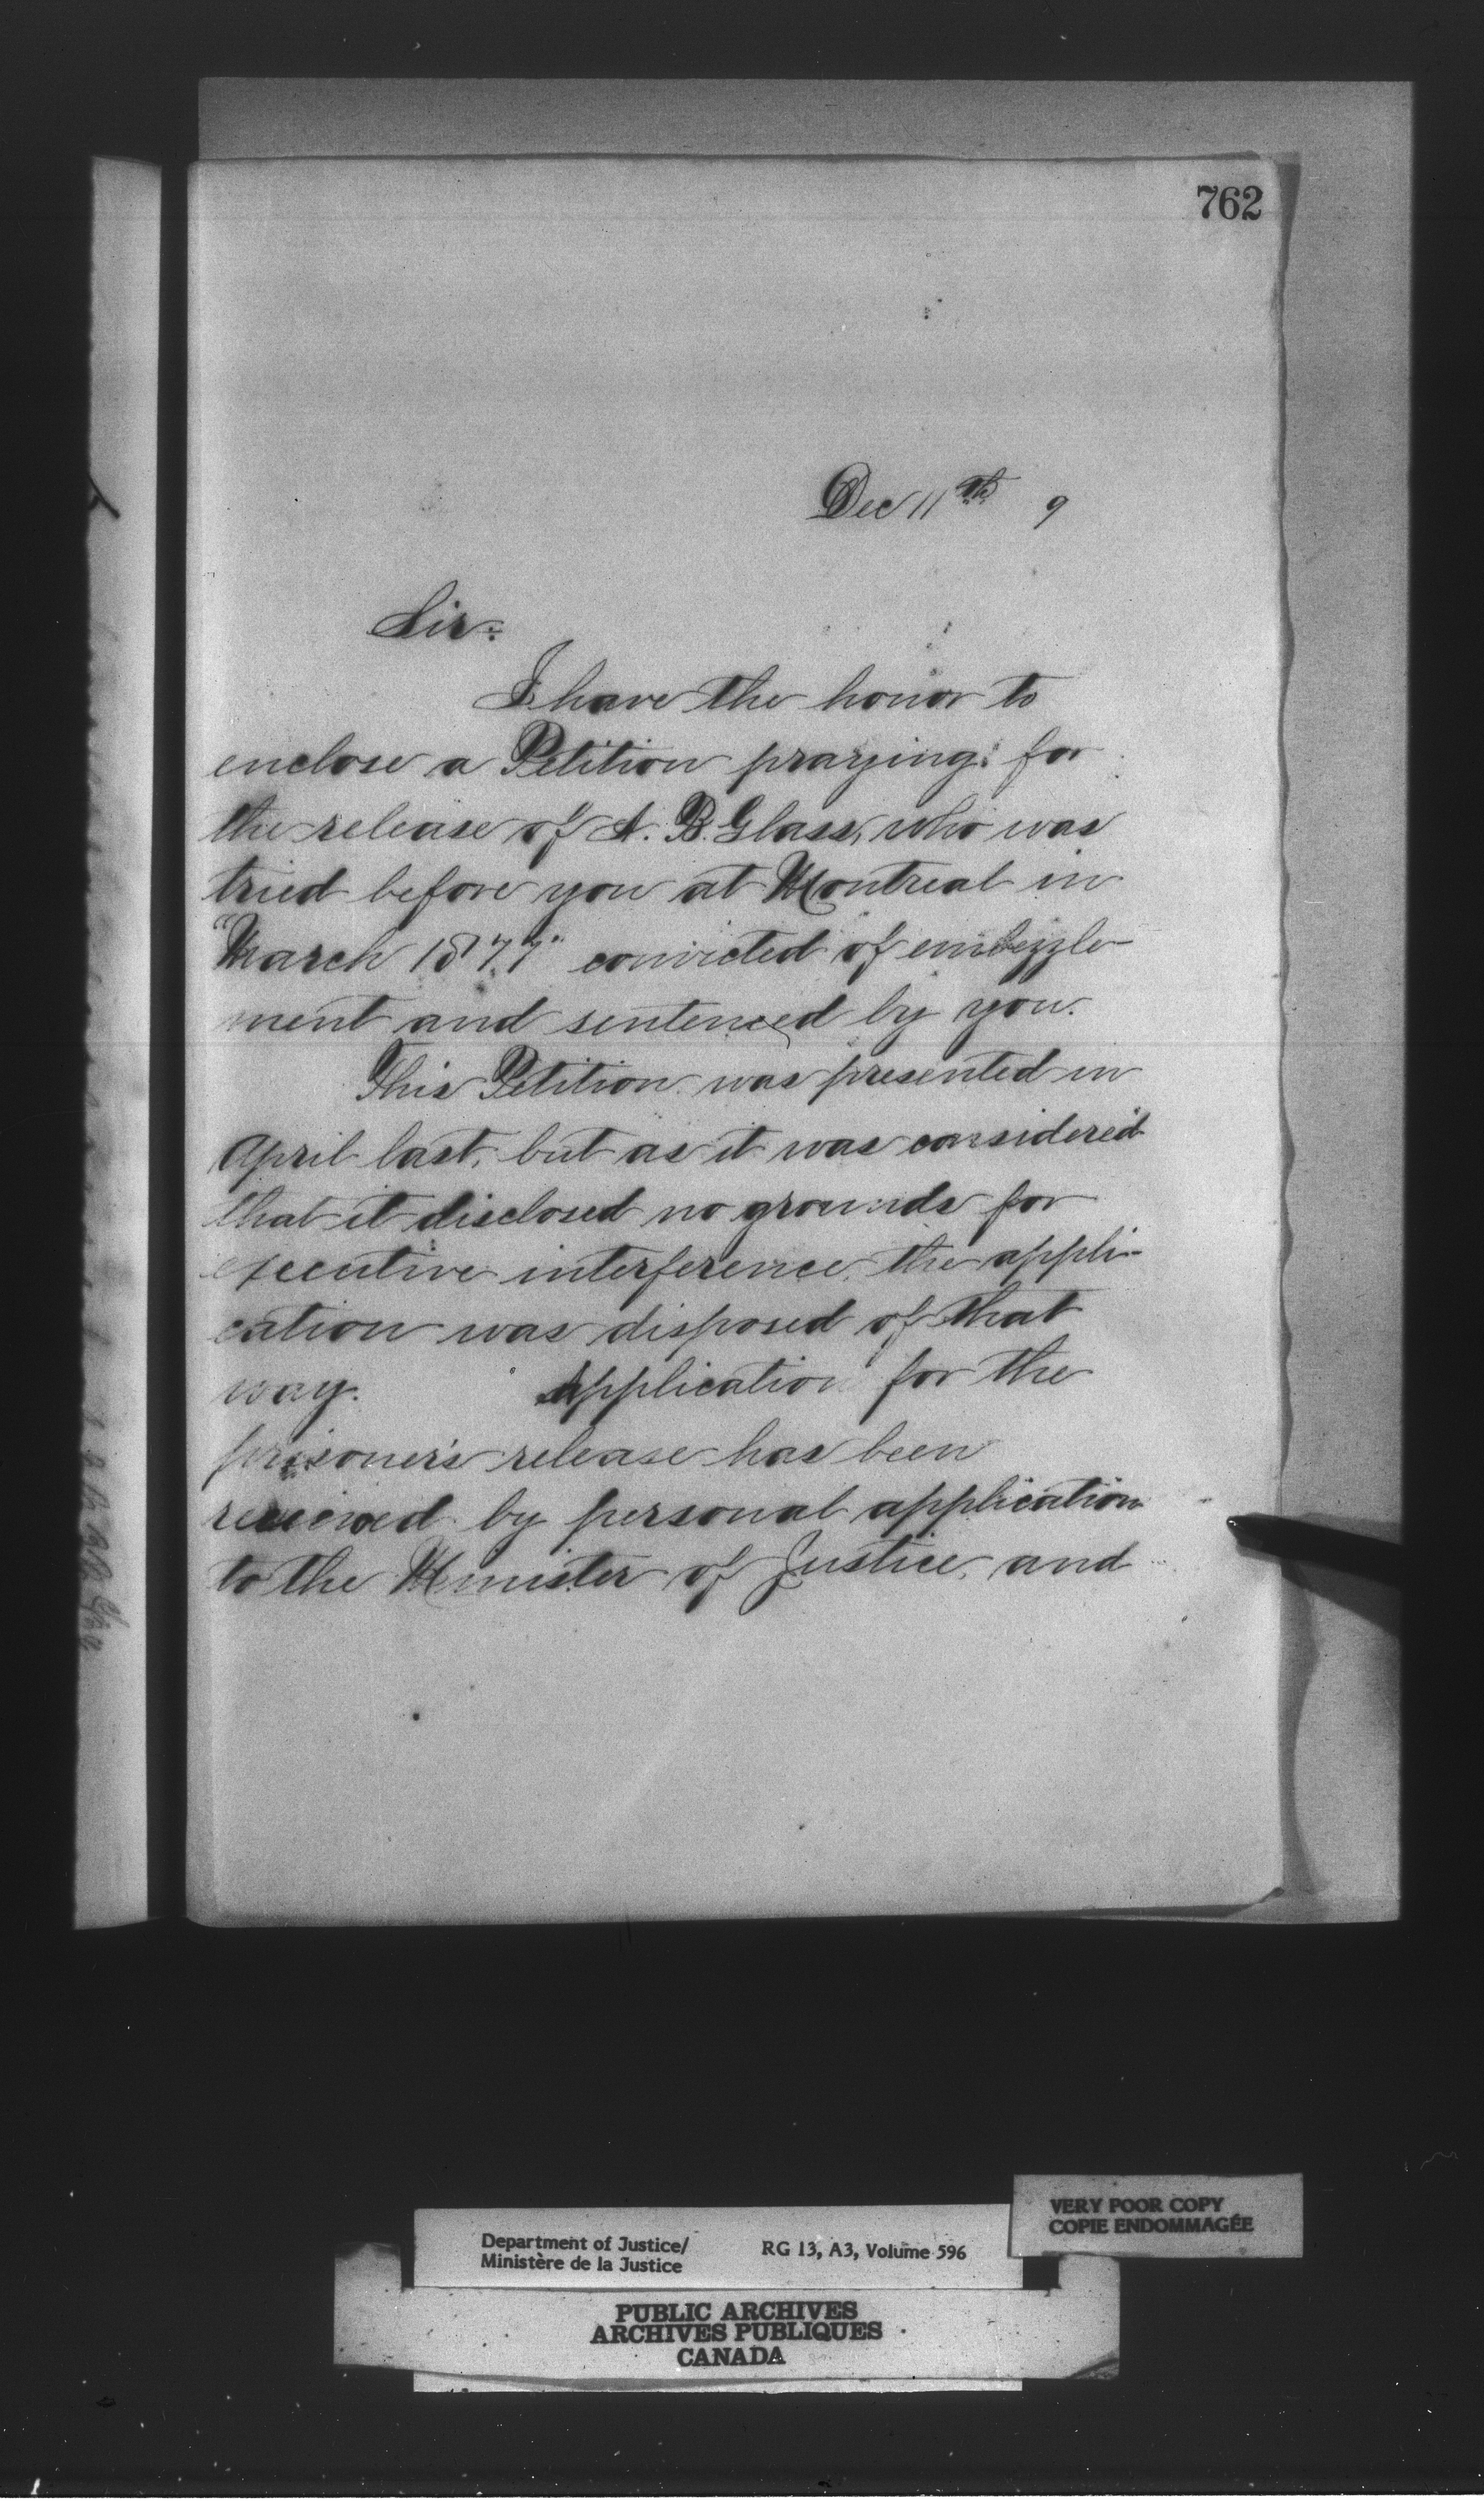 762
Dec 11th 9
Sir:
I have the honor to
enclose a Petition praying for
the release of A. B. Glass, who was
tried before you at Montreal in
"March 1877" convicted of embezzle-
ment and sentenced by you.
This Petition was presented in
April last, but as it was considered
that it disclosed no grounds for
executive interference, the appli-
cation was disposed of that
way. Application for the
prisoner's release has been
received by personal application
to the Minister of Justice, and
VERY POOR COPY
COPIE ENDOMMAGÉE
Department of Justice/ RG 13, A3, Volume 596
Ministère de la Justice
PUBLIC ARCHIVES
ARCHIVES PUBLIQUES
CANADA